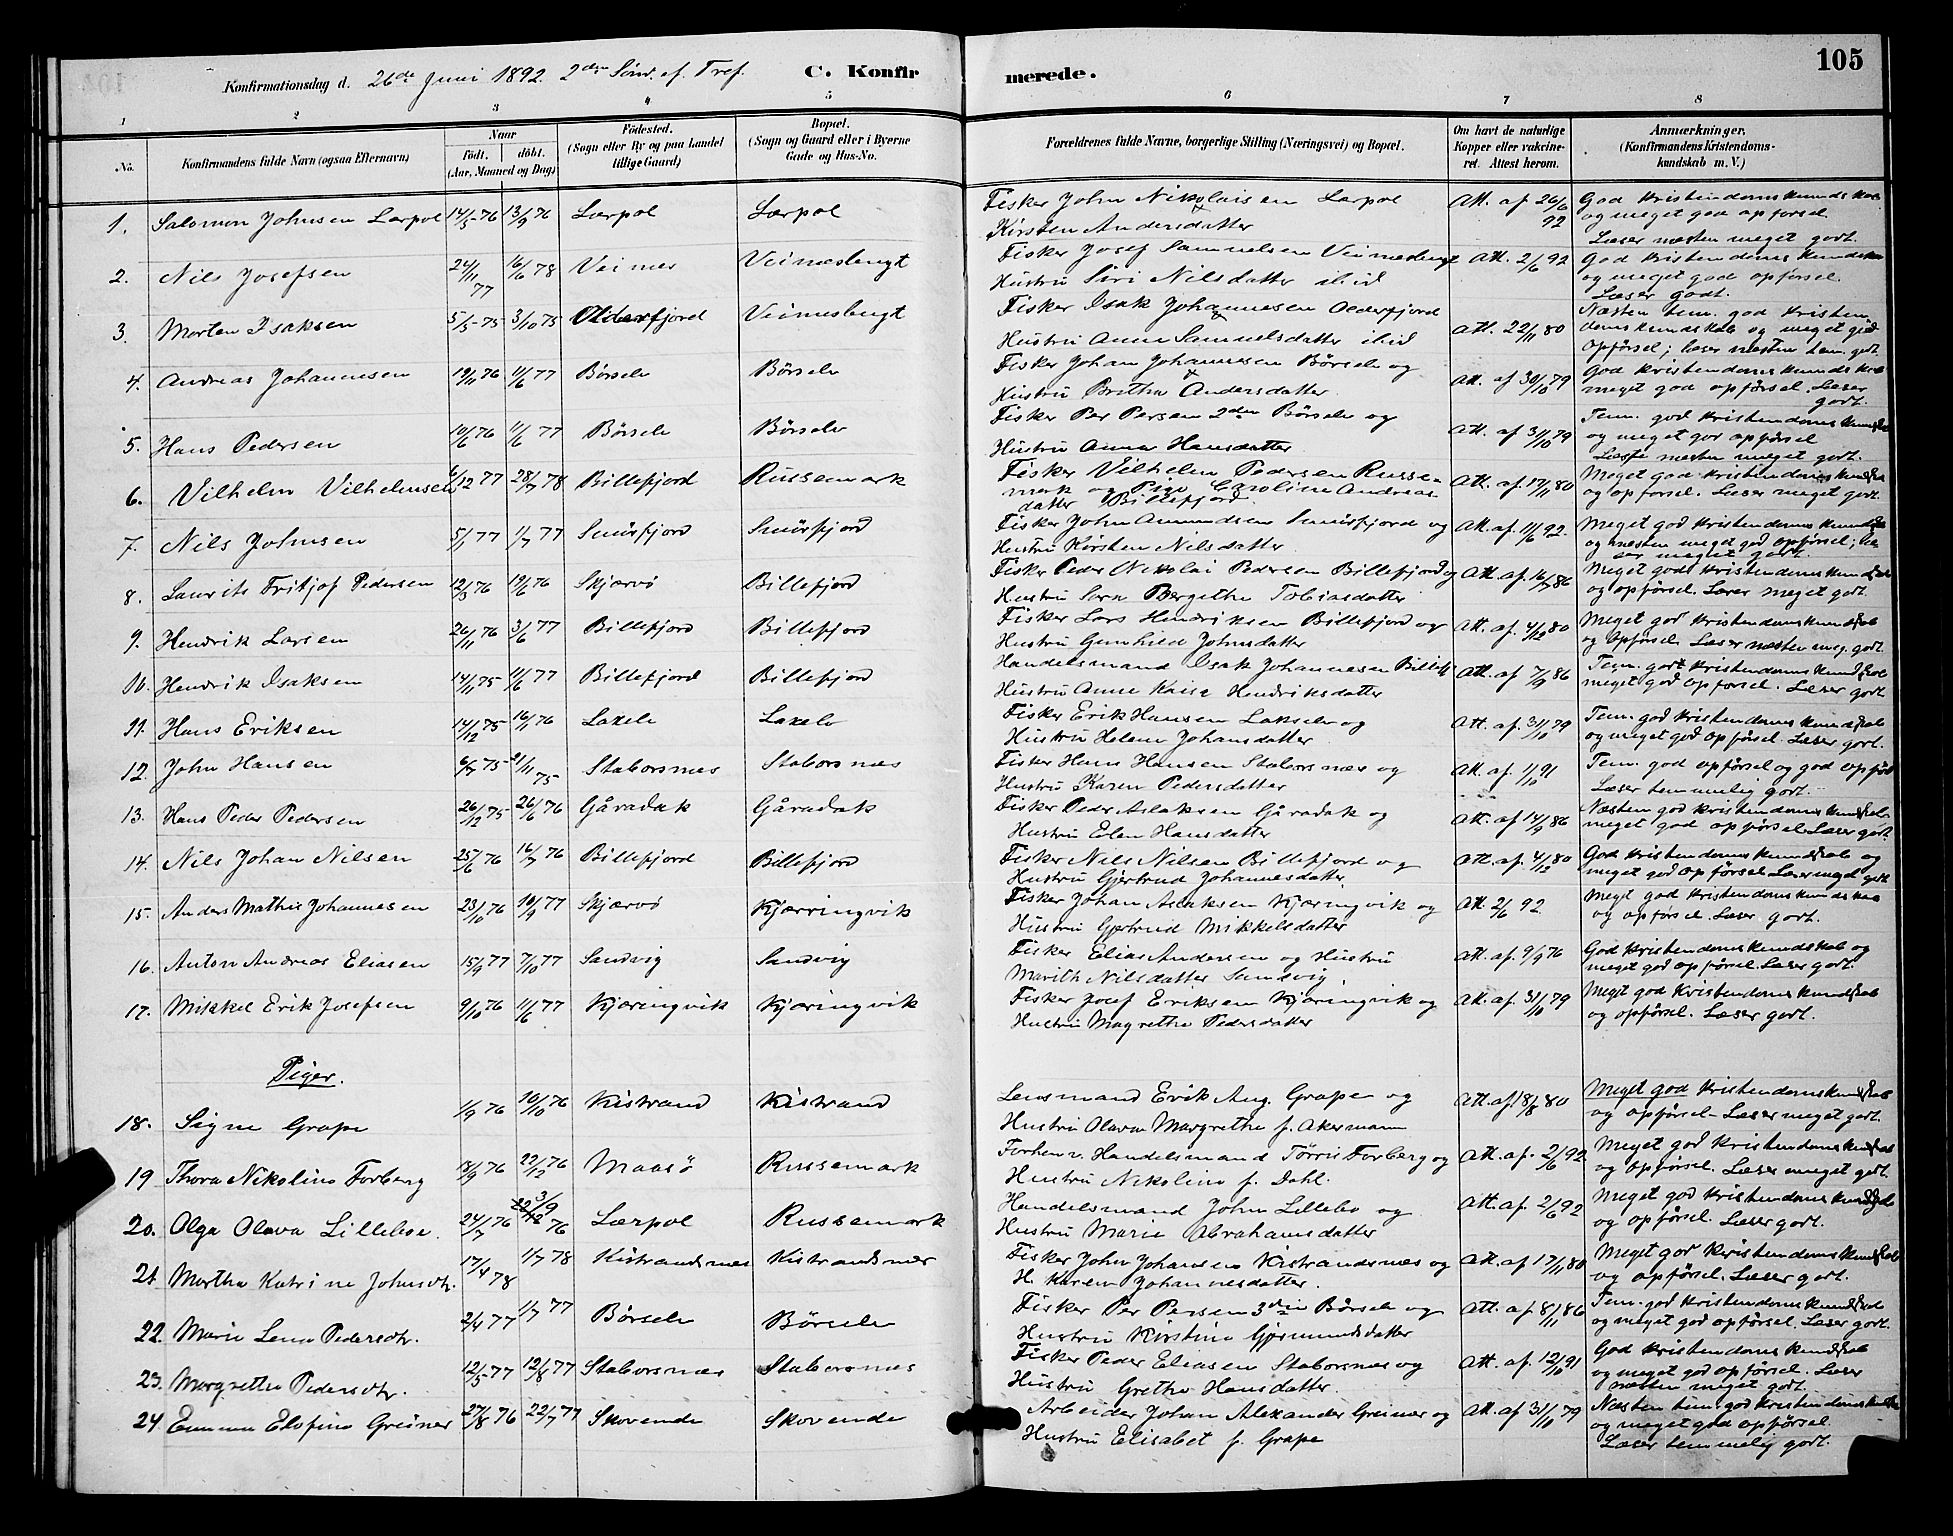 105
Konfirmationsdag d. 26de Juni 1892. 2den Sönd. ef. Tref. C. Konfirmerede.
1 2 3 4 5 6 7 8
No. Konfirmandens fulde Navn (ogsaa Efternavn) Naar födt. döbt. (Aar, Maaned og Dag) Födested. (Sogn eller By og paa Landet tillige Gaard) Bopæl. (Sogn og Gaard eller i Byerne Gade og Hus-No. Forældrenes fulde Navne, borgerlige Stilling (Næringsvei) og Bopæl. Om havt de naturlige Kopper eller vakcineret. Attest herom. Anmærkninger. (Konfirmandens Kristendomskundskab m. V.)
1. Salomon Johnsen Lærpol 14/5 76 13/9 76 Lærpol Lærpol Fisker John Nikolaisen Lærpol Att. af 26/6 92 God Kristendomskundskab
Kirsten Andersdatter og meget god opførsel.
Læser næsten meget godt.
2. Nils Josefsen 24/11 77 16/6 78 Veinæs Veinæsbugt Fisker Josef Samuelsen Veinæsbugt Att. 2/6 92 God Kristendomskundskab
Hustru Siri Nilsdatter ibid og meget god opførsel.
Læser godt.
3. Morten Isaksen 5/5 75 3/10 75 Olderfjord Veinesbugt Fisker Isak Johannesen Olderfjord Att. 22/11 80 Næsten tem. god Kristen-
Hustru Anne Samuelsdatter ibid domskundskab og meget god
opførsel; læser næsten tem. godt
4. Andreas Johannesen 19/11 76 11/6 77 Börselv Börselv Fisker Johan Johannesen Börselv og Att. af 30/10 79 God Kristendomskundskab
Hustru Britha Andersdatter meget god opførsel. Læser
godt.
5. Hans Pedersen 10/6 76 11/6 77 Börselv Börselv Fisker Per Persen 2den Börselv og Att. af 31/10 79 Tem. god Kristendomskundskab
Hustru Anna Hansdatter og meget god opførsel
Læser næsten meget godt.
6. Vilhelm Vilhelmsen 6/12 77 28/7 78 Billefjord Russemark Fisker Vilhelm Pedersen Russe- Att. af 17/11 80 Meget god Kristendomskundskab
mark og Pige Caroline Andreas- og opførsel. Læser meget godt
datter Billefjord.
7. Nils Johnsen 5/1 77 1/7 77 Smörfjord Smörfjord Fisker John Amundsen Smörfjord og Att. af 11/6 92. Meget god Kristendomskundskab
Hustru Kirsten Nilsdatter og næsten meget god opførsel; læ-
ser meget godt.
8. Laurits Fritjof Pedersen 12/3 76 19/6 76 Skjærvö Billefjord Fisker Peder Nikolai Pedersen Billefjord og Att. af 16/7 86 Meget god Kristendomskundskab
Hustru Sara Bergithe Tobiasdatter og opførsel. Læser meget godt.
9. Hendrik Larsen 26/11 76 3/6 77 Billefjord Billefjord Fisker Lars Hendriksen Billefjord og Att. af 4/12 80 Meget god Kristendomskundskab
Hustru Gunhild Johnsdatter og Opførsel. Læser næsten meg. godt
10. Hendrik Isaksen 14/11 75 11/6 77 Billefjord Billefjord Handelsmand Isak Johannesen Billefj Att. af 7/9 86 Tem. god Kristendomskundskab
Hustru Anne Kaisa Hendriksdatter meget god opførsel. Læser godt
11. Hans Eriksen 14/12 75 16/1 76 Lakselv Lakselv Fisker Erik Hansen Lakselv og Att. af. 31/10 79 Tem. god Kristendomskundskab
Hustru Helene Johansdatter og meget god opførsel. Læser godt.
12. John Hansen 6/7 75 21/11 75 Staborsnæs Staborsnæs Fisker Hans Hansen Staborsnæs og Att. af. 1/10 91 Tem. god opførsel og god opførs
Hustru Karen Pedersdatter Læser temmelig godt.
13. Hans Peder Pedersen 26/12 75 26/6 76 Gåradak Gåradak Fisker Peder Aslaksen Gåradak og Att. af 14/9 86 Næsten god Kristendomskundskab
Hustru Elen Hansdatter meget god opførsel. Læser godt
14. Nils Johan Nilsen 25/6 76 16/7 76 Billefjord Billefjord Fisker Nils Nilsen Billefjord og Att. af. 4/12 80 God Kristendomskundskab og
Hustru Gjertrud Johannesdatter. meget god opførsel Læser meget godt
15. Anders Mathis Johannesen 23/10 76 10/9 77 Skjærvö Kjærringvik Fisker Johan Aslaksen Kjæringvik og Att. 2/6 92. Meget god Kristendomskundskab
Hustru Gjertrud Mikkelsdatter og opførsel. Læser godt.
16. Anton Andreas Eliasen 15/9 77 7/10 77 Sandvig Sandvig Fisker Elias Andersen og Hustru Att. af. 9/9 76 God Kristendomskundskab og
Marith Nilsdatter Sandvig. meget god opførsel. Læser godt.
17. Mikkel Erik Josefsen 9/10 76 11/6 77 Kjæringvik Kjæringvik Fisker Josef Eriksen Kjæringvik og Att. af 31/10 79 Meget god Kristendomskundskab
Hustru Magrethe Pedersdatter og opførsel. Læser godt.
Piger.
18. Signe Grape 1/9 76 10/10 76 Kistrand Kistrand Lensmand Erik Aug. Grape og Att. af 18/8 80 Meget god Kristendomskundskab
Hustru Olava Margrethe f. Akermann og opførsel. Læser meget godt.
19 Thora Nikoline Forberg 18/9 76 22/12 76 Maasö Russemark Forhenv. Handelsmand Törris Forberg og Att. af. 2/6 92 Meget god Kristendomskundskab
Hustru Nikoline f. Dahl. og opførsel. Læser meget godt.
20. Olga Olava Lilleboe. 24/7 76 3/9 76 Lærpol Russemark Handelsmand John Lillebo og Att. af. 2/6 92 Meget god Kristendomskundskab
Hustru Marie Abrahamsdatter og opførsel. Læser godt.
21. Martha Katrine Johnsdtr. 17/4 78 1/7 78 Kistrandsnæs Kistrandsnæs Fisker John Johansen Kistrandsnæs og Att. af 17/11 80 Meget god Kristendomskundskab
H. Karen Johannesdatter. og opførsel. Læser godt.
22. Marie Lena Pedersdtr. 2/4 77 1/7 77 Börselv Börselv Fisker Per Persen 3die Börselv og Att. af 8/11 86 Tem. god Kristendomskundskab
Hustru Kirstine Gjermundsdatter og meget god opførsel. Læser godt.
23. Margrethe Pedersdtr. 12/5 77 12/8 77 Staborsnæs Staborsnæs Fisker Peder Eliasen Staborsnæs og Att. af. 12/10 91 God Kristendomskundskab
Hustru Grethe Hansdatter. og meget god opførsel. Læser
næsten meget godt.
24. Emma Elofine Greiner 27/8 76 22/7 77 Skovende Skovende Arbeider Johan Alexander Greiner og Att. af 31/10 79 Næsten tem. god Kristendomskundskab
Hustru Elisabet f. Grape og meget god opførsel.
Læser temmelig godt.